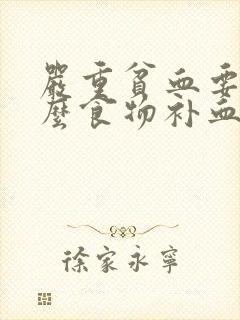 嚴重貧血要
麼食物补血
徐家永寧